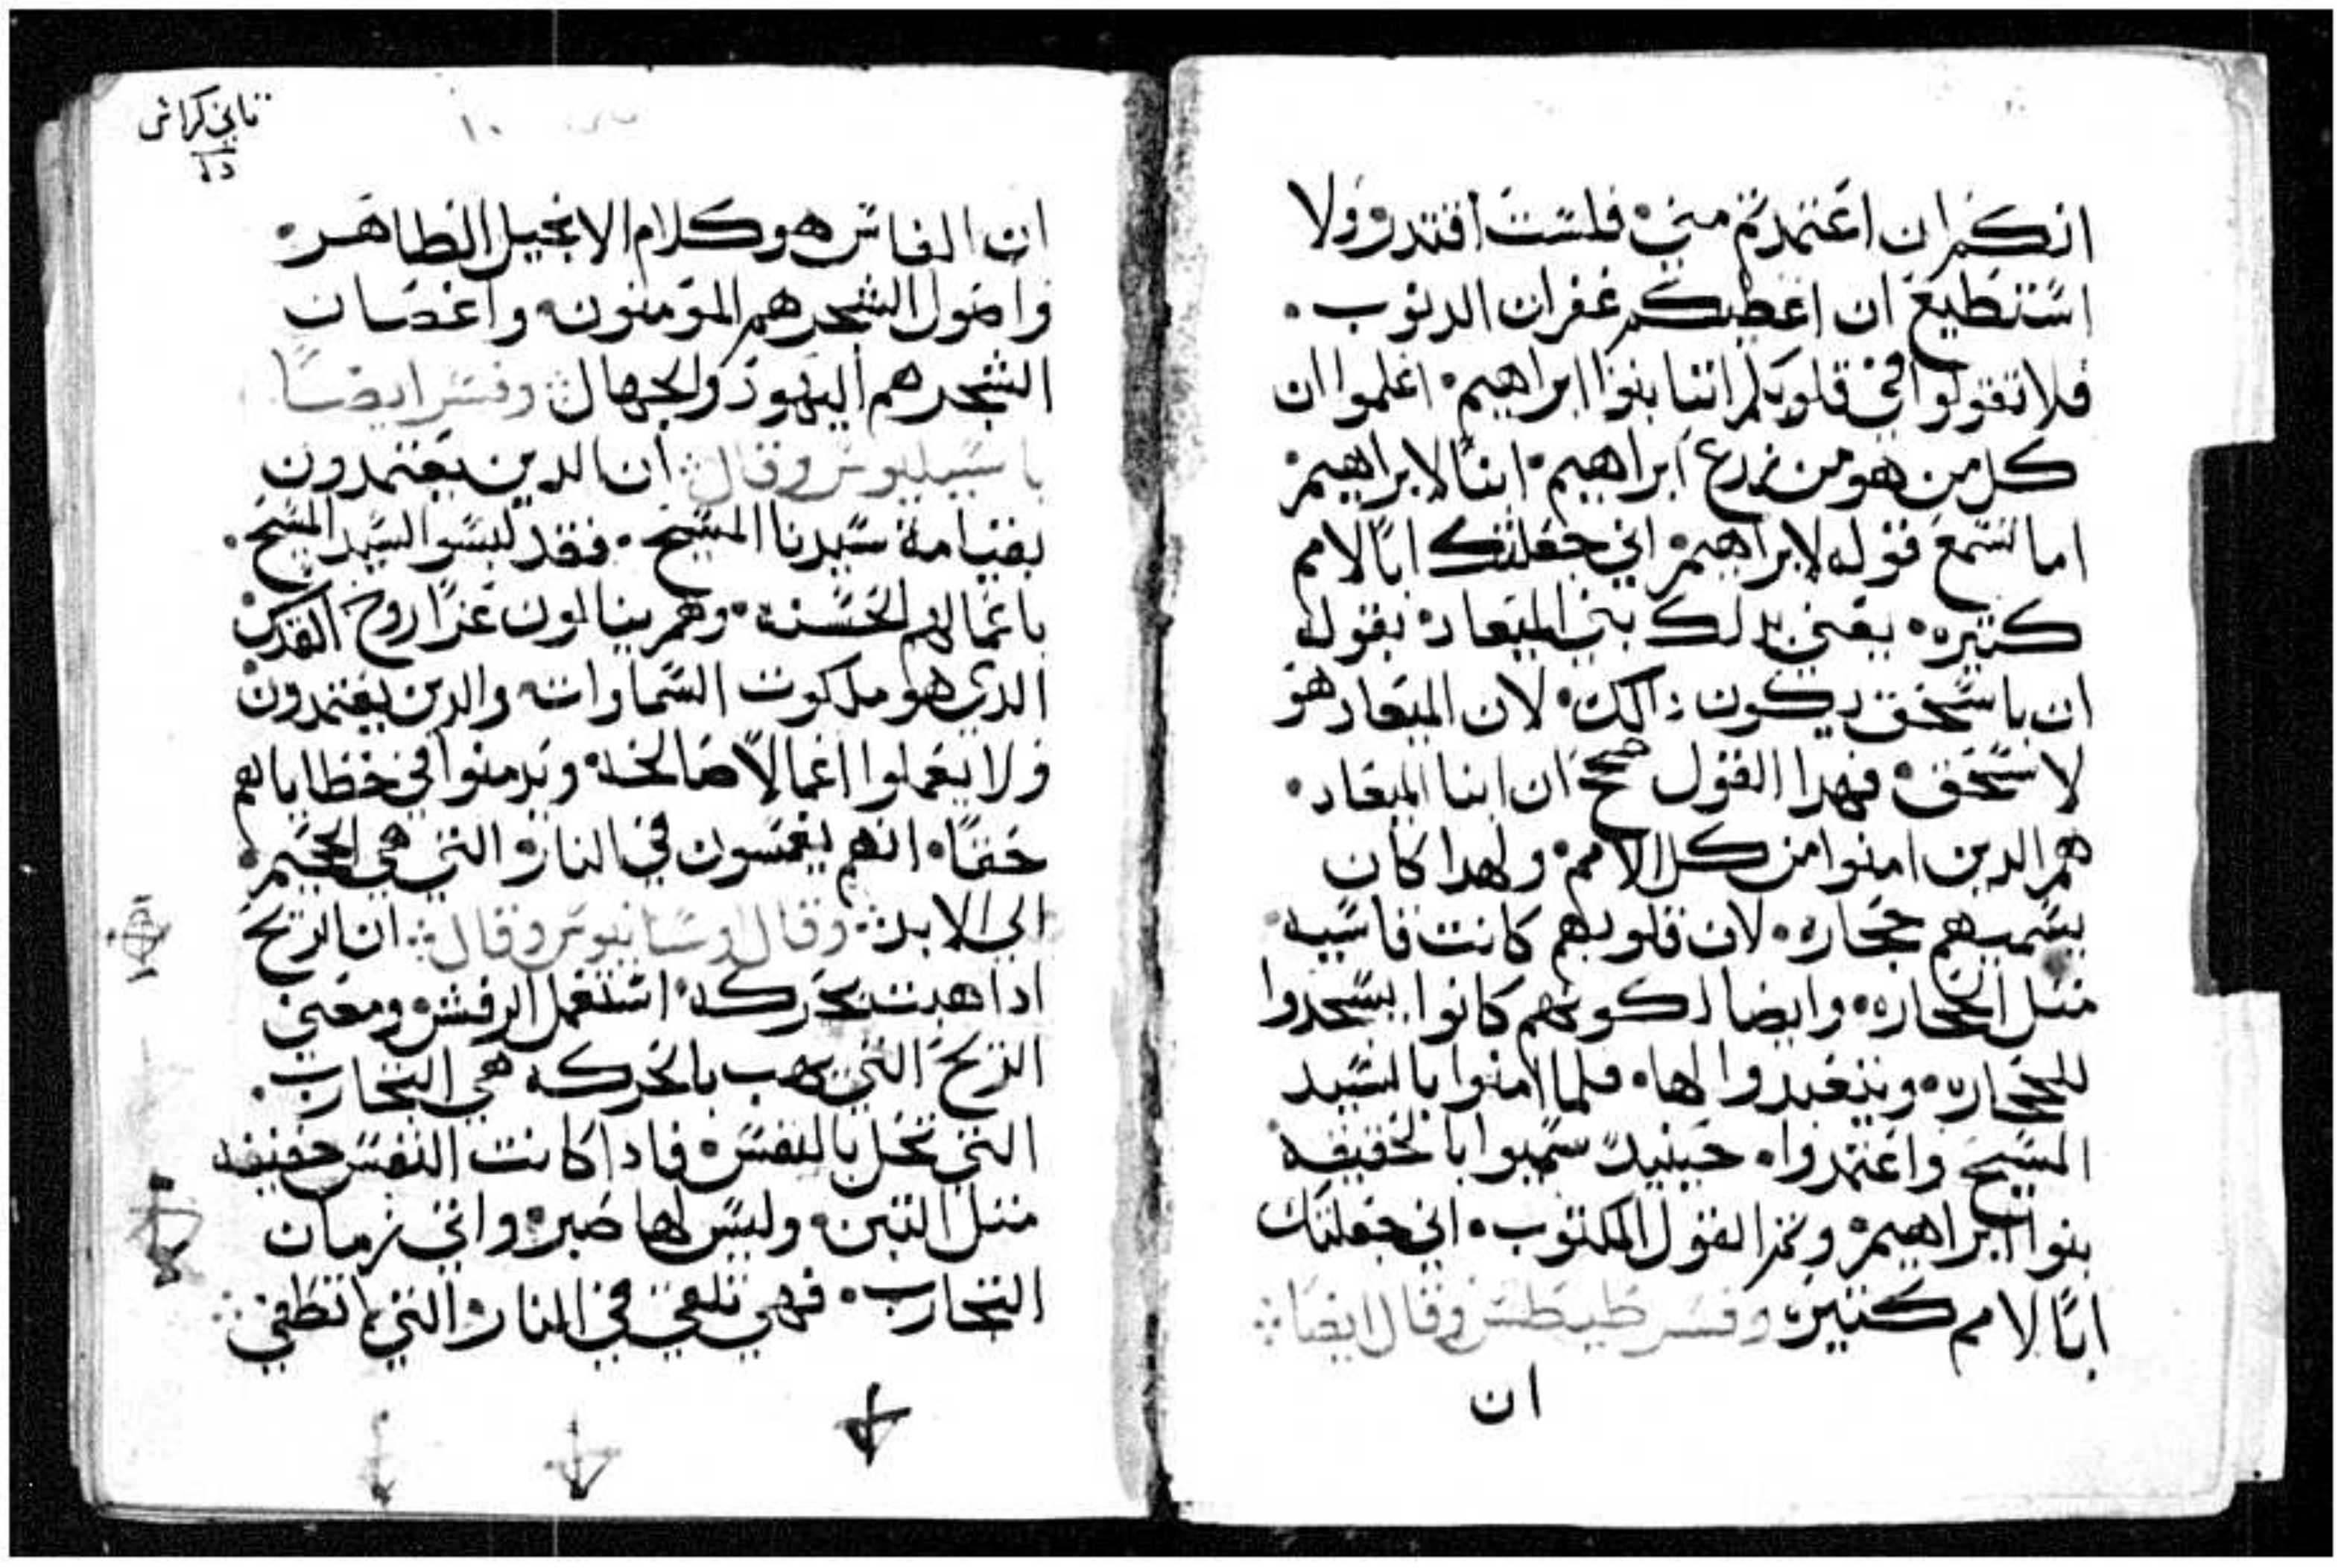 انكم ان اعتمدتم مني، فلست اقتدر ولا
استطيع ان اعطيكم غفران الدنوب.
فلا تقولوا في قلوبكم اننا بنوا ابراهيم. اعلموا ان
كل من هو من زرع ابراهيم. ابنًا لابراهيم
اما تسمع قوله لابراهيم. اني جعلتك ابًا لامم
كتيره. يعني بدلك بني الميعاد. بقوله
ان باسحق يكون ذالك. لان الميعاد هو
لاسحق. فهدا القول صحح ان ابنا الميعاد.
هم الدين امنوا من كل الامم. ولهدا كان
يسميهم حجاره. لان قلوبهم كانت قاسيه
متل الحجاره. وايضا لكونهم كانوا يسجدوا
للحجاره. ويتعبدوا لها. فلما امنوا بالسيد
المسيح واعتمدوا. حينيدً سميوا بالحقيقه
بنوا ابراهيم. وتم القول المكتوب. اني جعلتك
ابًا لامم كتيره وفسر طيطس وقال ايضًا
ان
تاني كراس
١٠
ان الفاس هو كلام الانجيل الطاهر.
واصول الشجر هم المومنون. واغصان
الشجر هم اليهود والجهال وفسر ايضًا
باسيليوس وقال ان الدين يعتمدون
بقيامة سيدنا المسيح. فقد لبسوا السيد المسيح.
باعمالهم الحسنه. وهم ينالون عزا روح القدس
الدي هو ملكوت السماوات. والدين يعتمدون
ولا يعملوا اعمالًا صالحه. ويدمنوا في خطاياهم
حقًا. انهم يغمسون في النار. التي هي الجحيم.
الي الابد. وقال اوسانيوس وقال ان الريح
ادا هبت بحركه. استعمل الرفش ومعني
الريح التي تهب بالحركه هي التجارب.
التي تحل بالنفس. فادا كانت النفس خفيفه
متل التبن. وليس لها صبر. واتي زمان
التجارب. فهي تلقي في النار التي لا تطفي